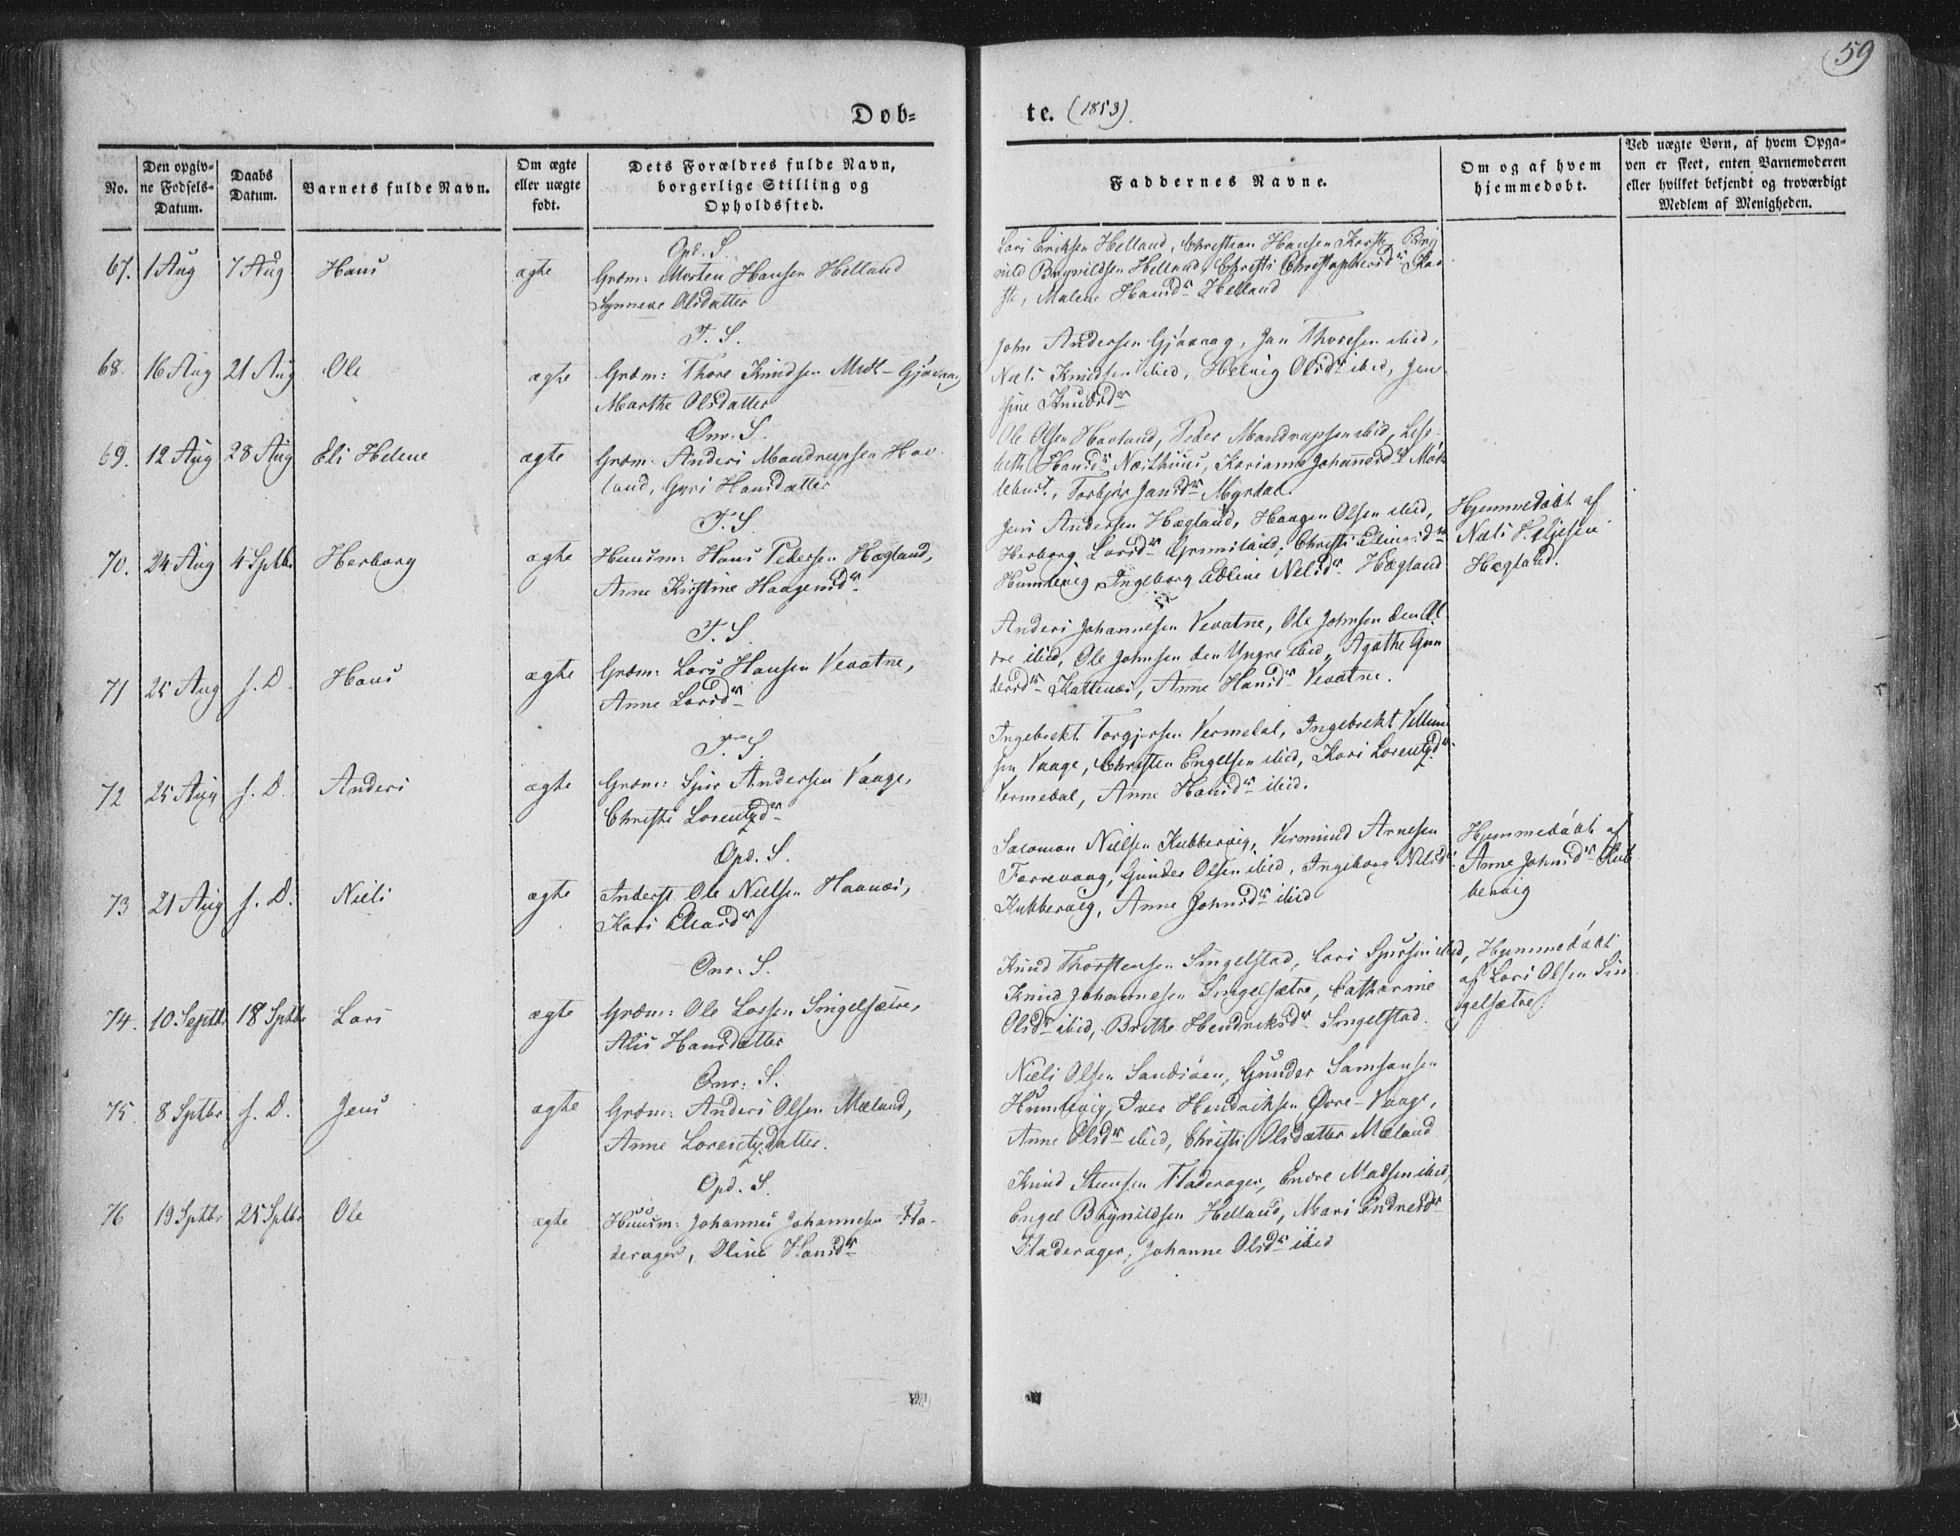 59
Døb-
te. (1853).
No.
Den opgiv-
ne Fødsels-
Datum.
Daabs
Datum.
Barnets fulde Navn.
Om ægte
eller uægte
født.
Dets Forældres fulde Navn,
borgerlige Stilling og
Opholdssted.
Faddernes Navne.
Om og af hvem
hjemmedøbt.
Ved uægte Børn, af hvem Opga-
ven er skeet, enten Barnemoderen
eller hvilket bekjendt og troværdigt
Medlem af Menigheden.
Opd. S.
67. 1 Aug 7 Aug Hans ægte Grdm: Morten Hansen Helland
Synneve Olsdatter
Lars Eriksen Helland, Christian Hansen
Helland, Christi Christophersdr
Malene Hansdr Helland
T. S.
68. 16 Aug 21 Aug Ole ægte Grdm: Thore Knudsen Midt-Gjøavaag
Marthe Olsdatter
John Andersen Gjøavaag, Jan Thoresen ibid,
Niels Knudsen ibid, Helvig Olsdr ibid, Jen
sine Knudsdr
Onr. S.
69. 12 Aug 28 Aug Eli Helene ægte Grdm. Anders Mandrupsen Hov-
land, Guri Hansdatter
Ole Olsen Hovland, Peder Mandrupsen ibid, Lise-
beth Hansdr Næsthuus, Karianne Johannesdr Møk
lebust, Torbjør Jansdr Myrdal.
T. S
70. 24 Aug 4 Sptbr Herborg ægte Huusm: Hans Pedersen Hægland,
Anne Kirstine Haagensdr
Jens Andersen Hægland, Haagen Olsen ibid,
Herborg Larsdr Grimsland, Christi Ellingsdr
Humlevig, Ingeborg Edline Nilsdr Hægland
Hjemmedøbt af
Niels
Hægland.
T. S
71 25 Aug s. D. Hans ægte Grdm: Lars Hansen Vevatne,
Anne Larsdr
Anders Johannesen Vevatne, Ole Johnsen den Æl
dre ibid, Ole Johnsen den Yngre ibid, Agathe Gun
dersdr Kattenæs, Anne Hansdr Vevatne.
T. S.
72 25 Aug s. D. Anders ægte Grdm: Sjur Andersen Vaage,
Christi Lorentzdr
Ingebrekt Torgjersen Vermedal, Ingebrekt Villum
sen Vaage, Christen Engelsen ibid, Kari Lorentzdr
Vermedal, Anne Hansdr ibid.
Opd. S.
73 21 Aug s. D. Niels ægte Inderst Ole Nielsen Haanæs,
Kari
Salomon Nielsen Kubbervig, Vermund Arnesen
Færevaag, Gunder Olsen ibid, Ingeborg Nilsdr
Kubbervig, Anne Johnsdr ibid
Hjemmedøbt af
Anne Johnsdr Kub
bervig
Onr: S.
74. 10 Septbr 18 Sptbr Lars ægte Grdm: Ole Larsen Singelsætre,
Alis Hansdatter
Knud Thorstensen Singelstad, Lars Sjursen ibid,
Knud Johannesen Singelsætre, Catharine
Olsdr ibid, Brithe Hendriksdr Singelstad.
Hjemmedøbt
af Lars Olsen Sin
gelsætre.
Onr: S.
75. 8 Sptbr s. D. Jens ægte Grdm: Anders Olsen Mæland,
Anne Lorentzdatter.
Niels Olsen Sandøen, Gunder Samsonsen
Humlevig, Iver Hendriksen Øvre-Vaage,
Anne Olsdr ibid, Christi Olsdatter Mæland
Opd. S.
76 19 Sptbr 25 Sptbr Ole ægte Huusm: Johannes Johannesen Fla-
derager, Oline Hansdr
Knud Steensen Fladerager, Endre Madsen ibid,
Engel Brynildsen Helland, Mari Endresdr
Fladerager, Johanne Olsdr ibid